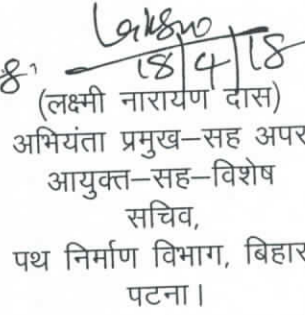 18/4/18
(लक्ष्मी नारायण दास)
अभियंता प्रमुख–सह अपर
आयुक्त–सह–विशेष
सचिव,
पथ निर्माण विभाग, बिहार
पटना।